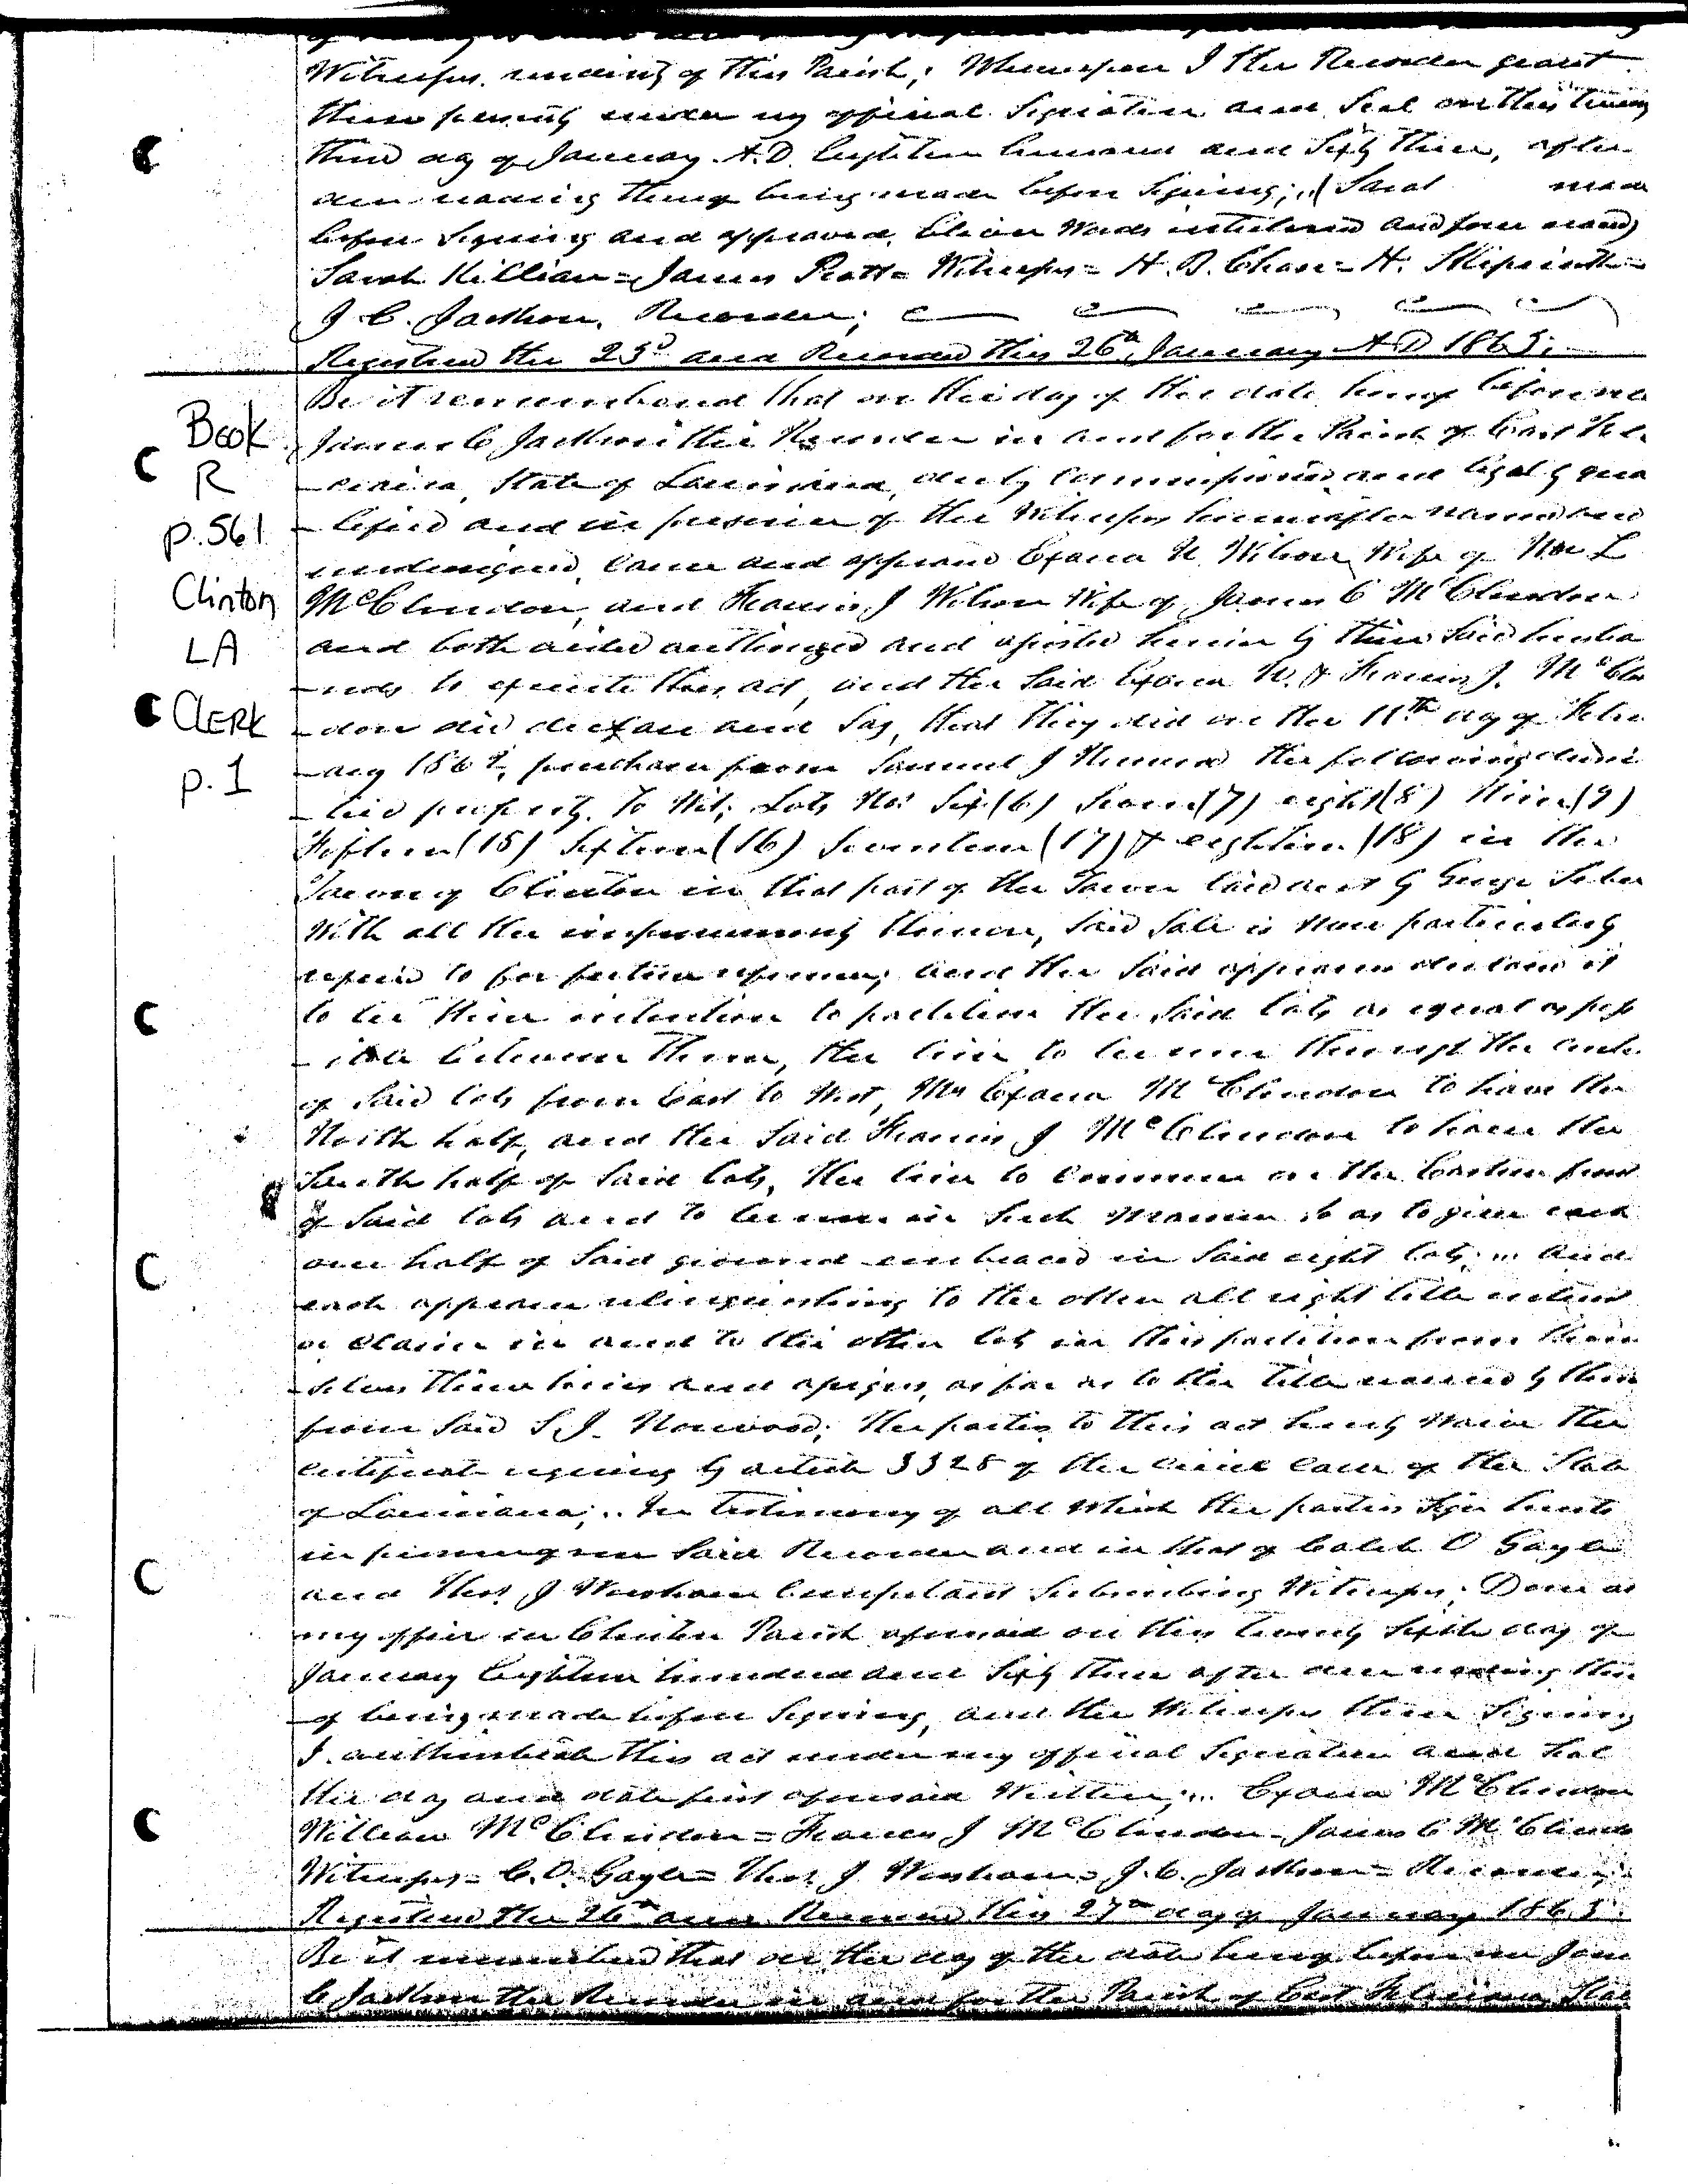 Witnesses residing of this Parish; Whereupon I the Recorder grant
these presents under my official Signature and Seal on this twenty
third day of January A.D. Eighteen hundred and Sixty three, after
due reading thereof being made before Signing; (Sarah mark
before Signing and approved, Eleven Words interlined and four erased)
Sarah Killian = James Pratt = Witnesses = H. B. Chase = H. Skipwith =
J. C. Jackson, Recorder;
Registered the 23d and Recorded this 26th January A.D 1863;
Book
R
p.561
Clinton
LA
CLERK
p.1
Be it remembered that on the day of the date hereof before me
James C Jackson the Recorder in and for the Parish of East Feli
-ciana, State of Louisiana, duly Commissioned and legally qua
-lified and in presence of the Witnesses hereinafter named and
undersigned, came and appeared Exana N. Wilson Wife of Wm L
McClendon, and Frances J Wilson Wife of James C McClendon
and both aided authorized and assisted herein by their Said husba
-nds to execute this act, and the Said Exana N. & Frances J. McClen
-don did declare and Say, that they did on the 11th day of Febru
-ary 186 purchase from Samuel J Norwood the following descri
-bed property, to Wit; Lots Nos Six (6) Seven (7) eight (8) Nine (9)
Fifteen (15) Sixteen (16) Seventeen (17) & eighteen (18) in the
Town of Clinton in that part of the Town laid out by George Sebor
With all the improvements thereon, Said Sale is more particularly
referred to for further reference; and the Said appearers declare it
to be their intention to partition the Said lots as equal as poss
-ible between them, the line to be run through the center
of Said lots from East to West, Mrs Exana McClendon to have the
North half, and the Said Frances J McClendon to have the
South half of Said lots, the line to commence on the Eastern front
of Said lots and to be run in Such manner as to give each
one half of Said ground embraced in Said eight lots; and
each appearer relinquishing to the other all right title interest
or claim in and to the other lots in this partition from them
-selves their heirs and assigns, as far as to the title acquired by them
from Said S. J. Norwood; the parties to this act hereby waive the
certificate required by article 3328 of the civil Code of the State
of Louisiana; In testimony of all Which the parties Sign hereto
in presence of me Said Recorder and in that of Caleb O Gayle
and Thos J Worsham Competent Subscribing Witnesses. Done at
my office in Clinton Parish aforesaid on this twenty Sixth day of
January Eighteen hundred and Sixty three after due reading there
-of being made before Signing, and the Witnesses there Signing
I authenticate this act under my official Signature and Seal
the day and date first aforesaid Written; Exana McClendon
William McClendon = Frances J McClendon = James C McClendon
Witnesses = C. O. Gayle = Thos J Worsham = J. C. Jackson = Recorder;
Registered the 26th and Recorded this 27th day of January 1863
Be it remembered that on the day of the date hereof before me Jame
C Jackson the Recorder in and for the Parish of East Feliciana Stat